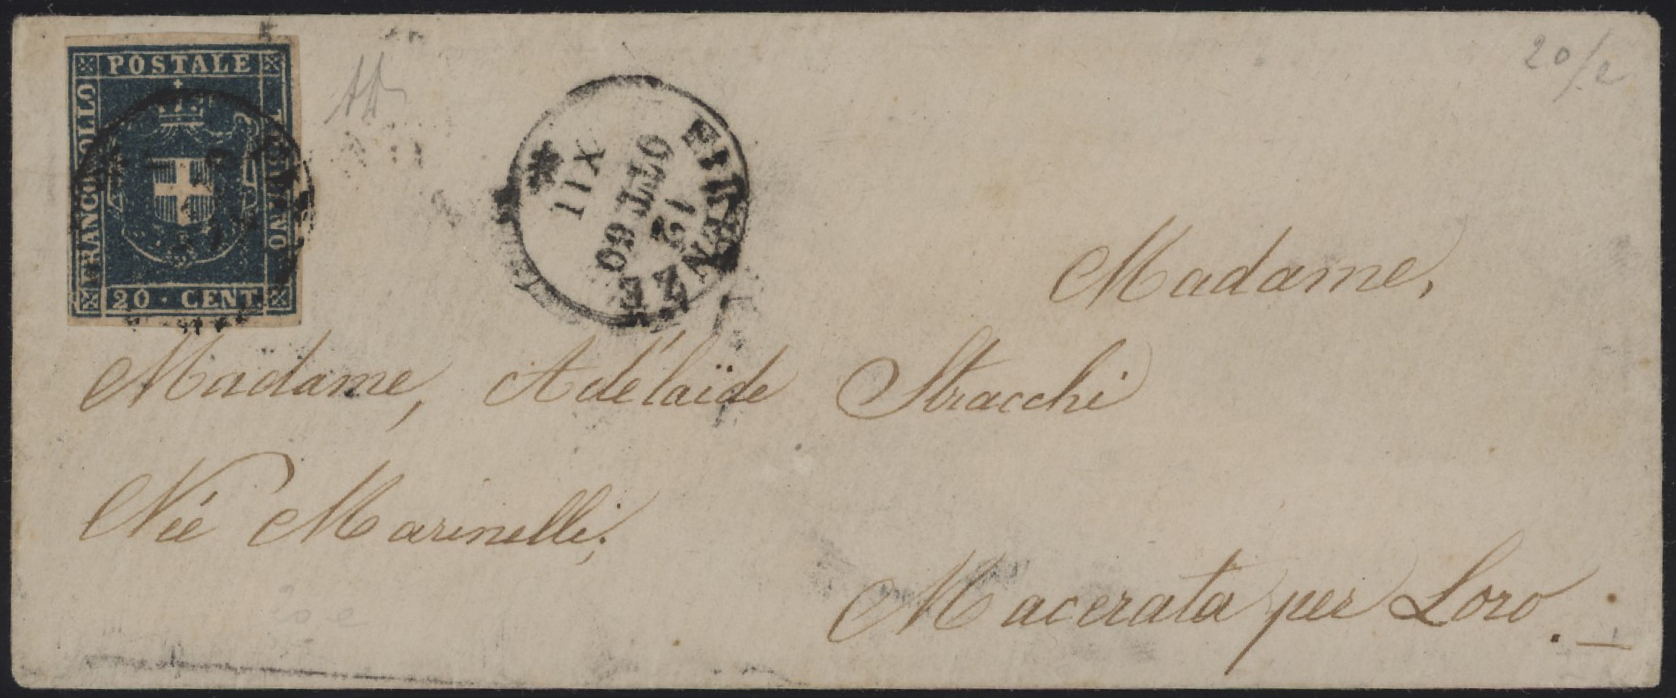 POSTALE
FRANCOBOLLO
20 · CENT.
FIRENZE
12
OTT 60
XII
20/2
Madame,
Madame, Adélaïde Stracchi
Née Marinelli;
Macerata per Loro.